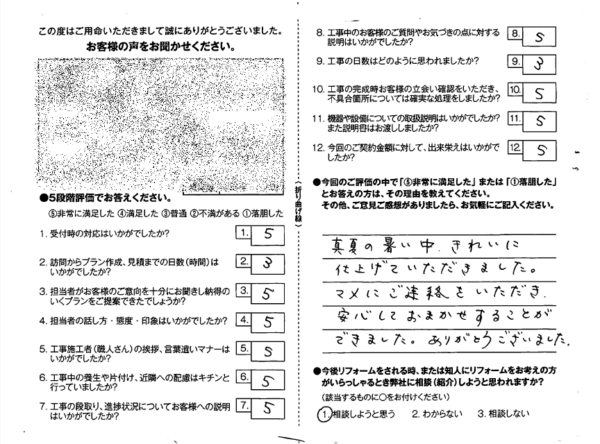 この度はご用命いただきまして誠にありがとうございました。
お客様の声をお聞かせください。
●5段階評価でお答えください。
⑤非常に満足した ④満足した ③普通 ②不満がある ①落胆した
1. 受付時の対応はいかがでしたか?
1. 5
2. 訪問からプラン作成、見積までの日数(時間)は
いかがでしたか?
2. 3
3. 担当者がお客様のご意向を十分にお聞きし納得の
いくプランをご提案できたでしょうか?
3. 5
4. 担当者の話し方・態度・印象はいかがでしたか?
4. 5
5. 工事施工者(職人さん)の挨拶、言葉遣いマナーは
いかがでしたか?
5. 5
6. 工事中の養生や片付け、近隣への配慮はキチンと
行っていましたか?
6. 5
7. 工事の段取り、進捗状況についてお客様への説明
はいかがでしたか?
7. 5
(折り曲げ線)
8. 工事中のお客様のご質問やお気づきの点に対する
説明はいかがでしたか?
8. 5
9. 工事の日数はどのように思われましたか?
9. 3
10. 工事の完成時お客様の立会い確認をいただき、
不具合箇所については確実な処理をしましたか?
10. 5
11. 機器や設備についての取扱説明はいかがでしたか?
また説明書はお渡ししましたか?
11. 5
12. 今回のご契約金額に対して、出来栄えはいかがで
したか?
12. 5
●今回のご評価の中で「⑤非常に満足した」または「①落胆した」
とお答えの方は、その理由を教えてください。
その他、ご意見ご感想がありましたら、お気軽にご記入ください。
真夏の暑い中、きれいに
仕上げていただきました。
マメにご連絡をいただき、
安心しておまかせすることが
できました。ありがとうございました。
●今後リフォームをされる時、または知人にリフォームをお考えの方
がいらっしゃるとき弊社に相談(紹介)しようと思われますか?
(該当するものに○をお付けください)
1. 相談しようと思う 2. わからない 3. 相談しない